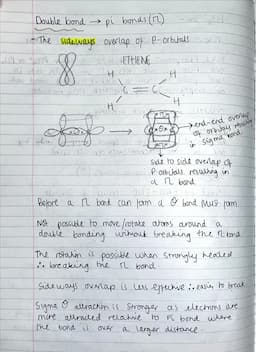 Double bond → pi bonds (π)
- The sideways overlap of P-orbitals
ETHENE
H H
C = C
H H
→ end-end overlap
of orbital resulting
in sigma bond.
side to side overlap of
P orbitals resulting in
a π bond
Before a π bond can form a θ bond must form
Not possible to move/rotate atoms around a
double bonding without breaking the π bond
The rotation is possible when strongly heated
∴ breaking the π bond.
Sideways overlap is less effective ∴ easy to break
Sigma θ attraction is stronger as electrons are
more attracted relative to Pi bond where
the bond is over a larger distance.